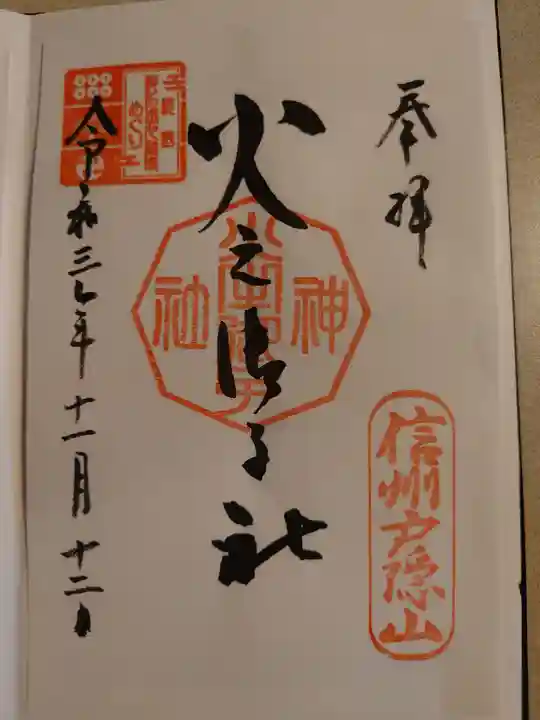 奉拝
信州戸隠山
火之御子社
神社
令和三年十一月十二日